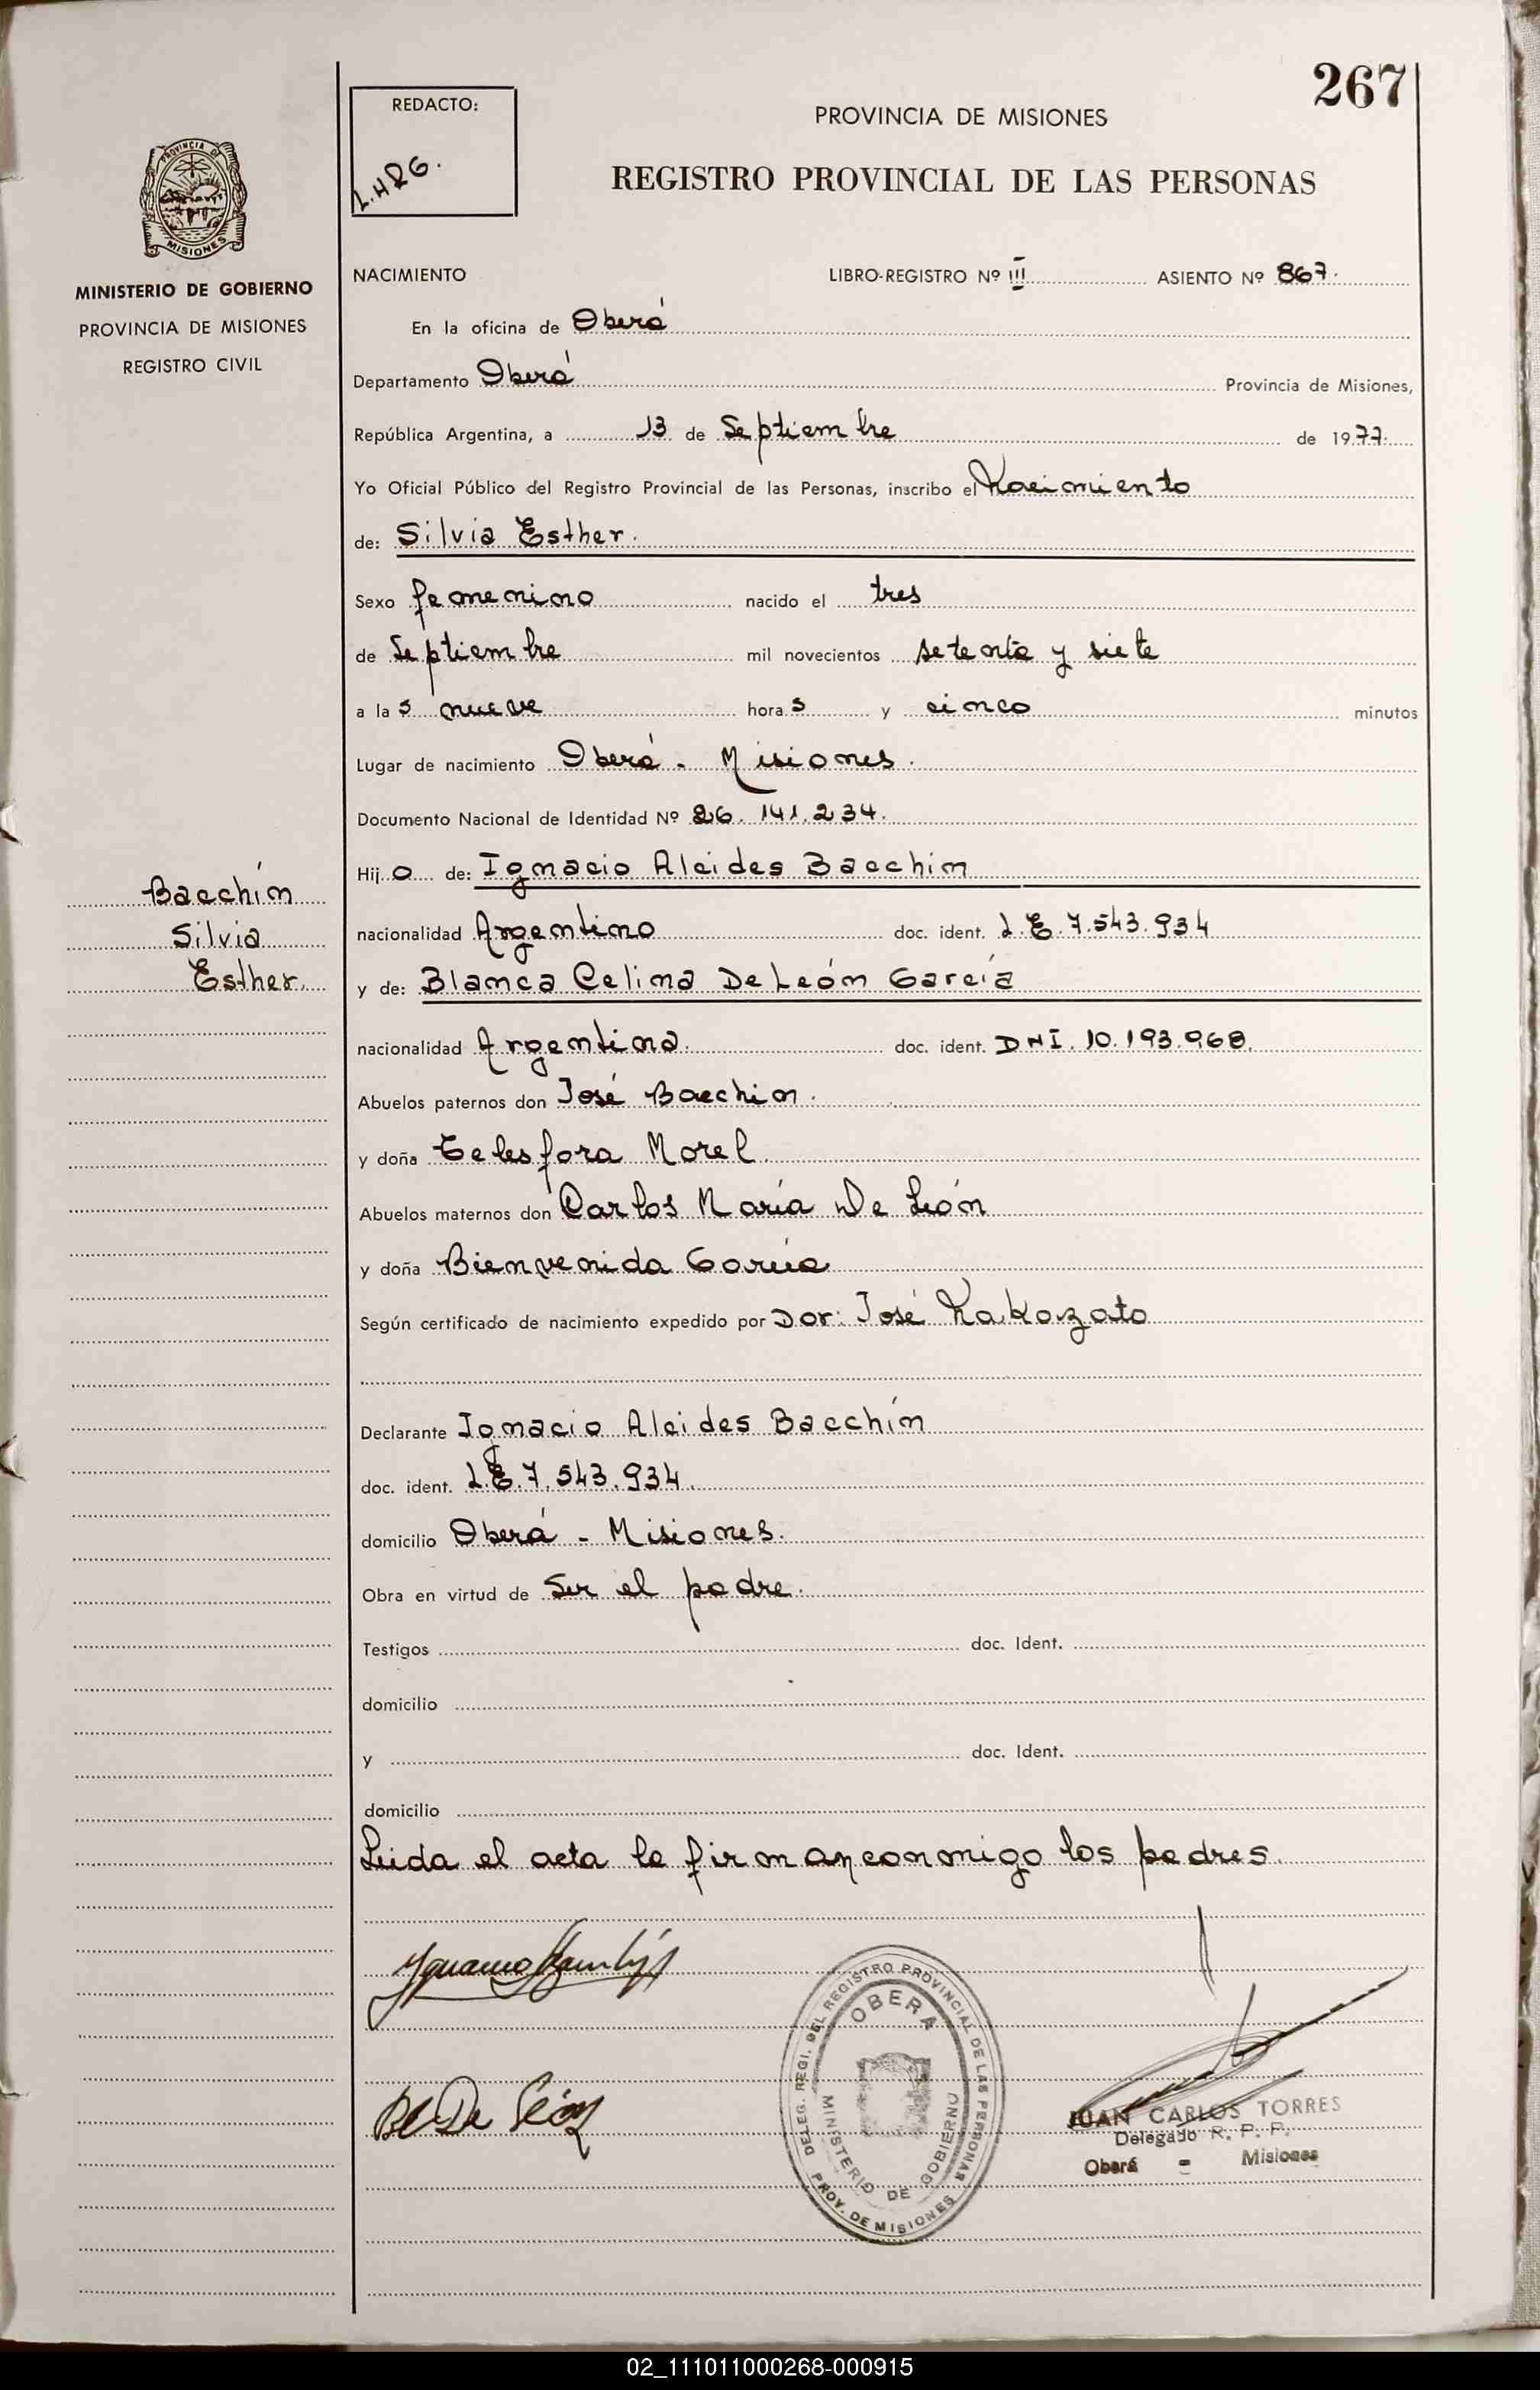 267
REDACTO:
L.H.R.G.
PROVINCIA DE MISIONES
REGISTRO PROVINCIAL DE LAS PERSONAS
PROVINCIA DE
MISIONES
MINISTERIO DE GOBIERNO
PROVINCIA DE MISIONES
REGISTRO CIVIL
NACIMIENTO LIBRO-REGISTRO Nº III ASIENTO Nº 867.
En la oficina de Oberá
Departamento Oberá Provincia de Misiones,
República Argentina, a 13 de Septiembre de 1977.
Yo Oficial Público del Registro Provincial de las Personas, inscribo el Nacimiento
de: Silvia Esther.
Sexo femenino nacido el tres
de Septiembre mil novecientos setenta y siete
a las nueve horas y cinco minutos
Lugar de nacimiento Oberá - Misiones.
Documento Nacional de Identidad Nº 26.141.234.
Hijo de: Ignacio Alcides Bacchín
nacionalidad Argentino doc. ident. L.E. 7.543.934
y de: Blanca Celina De León García
nacionalidad Argentina. doc. ident. DNI. 10.193.968.
Bacchín
Silvia
Esther.
Abuelos paternos don José Bacchín.
y doña Telesfora Morel
Abuelos maternos don Carlos María De León
y doña Bienvenida García
Según certificado de nacimiento expedido por Dor: José Nakazato
Declarante Ignacio Alcides Bacchín
doc. ident. L.E. 7.543.934.
domicilio Oberá - Misiones.
Obra en virtud de Ser el padre.
Testigos doc. Ident.
domicilio
y doc. Ident.
domicilio
Leida el acta la firman conmigo los padres.
B C De León
DELEG. REGI. DEL REGISTRO PROVINCIAL DE LAS PERSONAS
OBERA
MINISTERIO DE GOBIERNO
PROV. DE MISIONES
JUAN CARLOS TORRES
Delegado R. P. P.
Oberá - Misiones
02_111011000268-000915